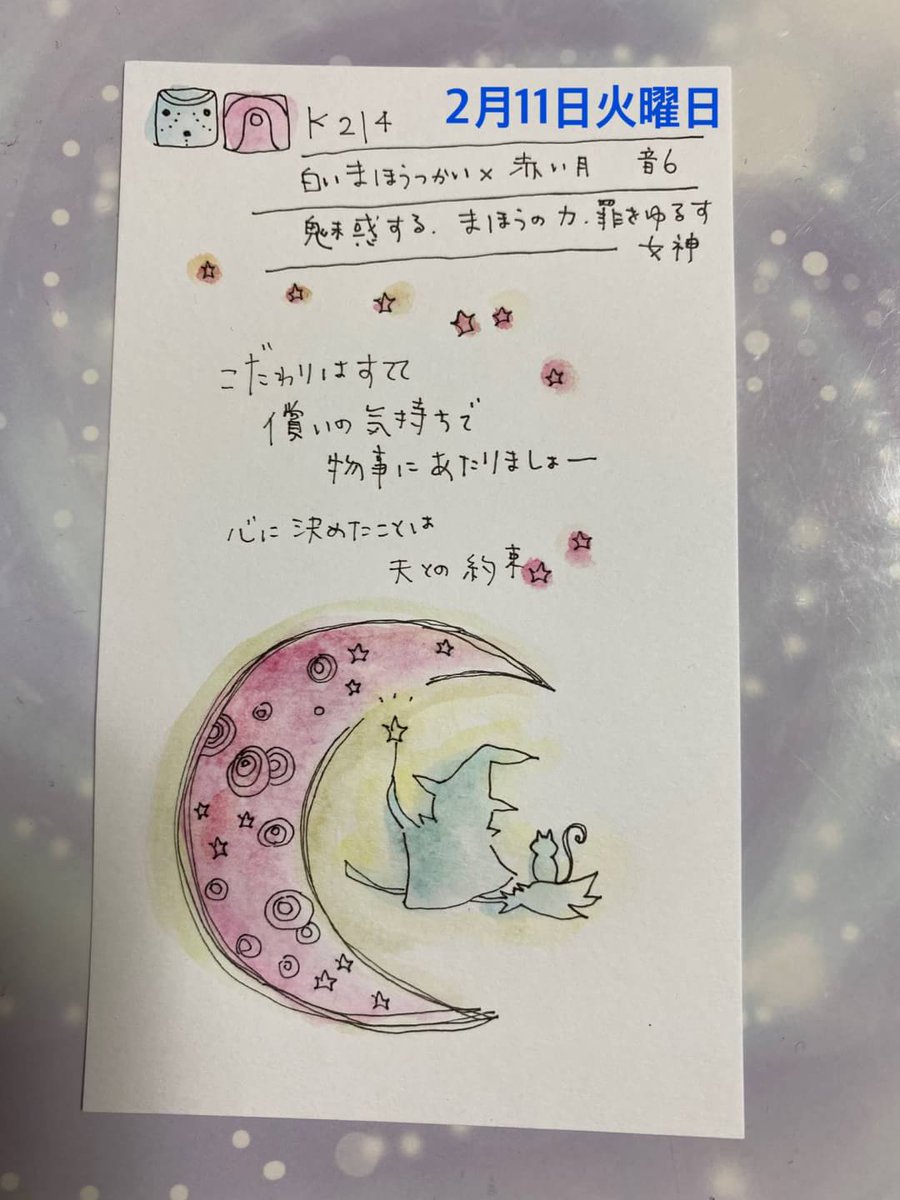 2月11日火曜日
K214
白いまほうつかい×赤い月 音6
魅惑する.まほうの力.罪をゆるす
女神
こだわりはすてて
償いの気持ちで
物事にあたりましょー
心に決めたことは
天との約束